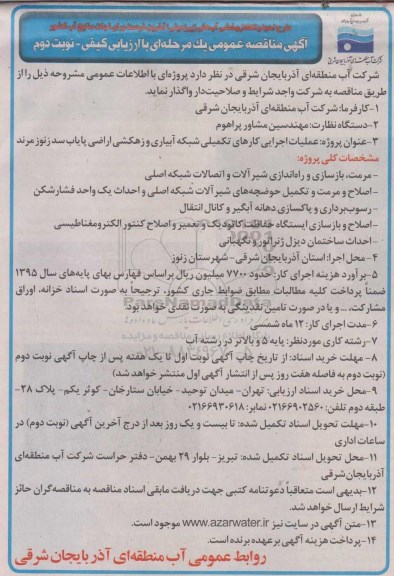 آگهی مناقصه عمومی یک مرحله‌ای با ارزیابی کیفی - نوبت دوم
شرکت آب منطقه‌ای آذربایجان شرقی در نظر دارد پروژه‌ای با اطلاعات عمومی مشروحه ذیل را از
طریق مناقصه به شرکت واجد شرایط و صلاحیت‌دار واگذار نماید.
۱-کارفرما: شرکت آب منطقه‌ای آذربایجان شرقی
۲-دستگاه نظارت: مهندسین مشاور پراهوم
۳-عنوان پروژه: عملیات اجرایی کارهای تکمیلی شبکه آبیاری و زهکشی اراضی پایاب سد زنوز مرند
مشخصات کلی پروژه:
- مرمت، بازسازی و راه‌اندازی شیرآلات و اتصالات شبکه اصلی
- اصلاح و مرمت و تکمیل حوضچه‌های شیرآلات شبکه اصلی و احداث یک واحد فشارشکن
- رسوب‌برداری و پاکسازی دهانه آبگیر و کانال انتقال
- اصلاح و بازسازی ایستگاه حفاظت کاتودیک و تعمیر و اصلاح کنتور الکترومغناطیسی
- احداث ساختمان دیزل ژنراتور و نگهبانی
۴- محل اجرا: استان آذربایجان شرقی- شهرستان زنوز
۵-برآورد هزینه اجرای کار: حدود ۷۷۰۰ میلیون ریال براساس فهارس بهای پایه‌های سال ۱۳۹۵
ضمناً پرداخت کلیه مطالبات مطابق ضوابط جاری کشور، ترجیحاً به صورت اسناد خزانه، اوراق
مشارکت، ... و یا در صورت تامین نقدینگی به صورت نقدی خواهد بود.
۶-مدت اجرای کار: ۱۲ ماه شمسی
۷-رشته کاری موردنظر: پایه ۵ و بالاتر در رشته آب
۸- مهلت خرید اسناد: از تاریخ چاپ آگهی نوبت اول تا یک هفته پس از چاپ آگهی نوبت دوم
(نوبت دوم به فاصله هفت روز پس از انتشار آگهی اول منتشر خواهد شد)
۹-محل خرید اسناد ارزیابی: تهران- میدان توحید- خیابان ستارخان- کوثر یکم- پلاک ۲۸-
طبقه دوم تلفن: ۰۲۱۶۶۹۰۲۵۶۰ نمابر: ۰۲۱۶۶۹۳۰۶۱۸
۱۰-مهلت تحویل اسناد تکمیل شده: تا بیست و یک روز بعد از درج آخرین آگهی (نوبت دوم) در
ساعات اداری
۱۱- محل تحویل اسناد تکمیل شده: تبریز- بلوار ۲۹ بهمن- دفتر حراست شرکت آب منطقه‌ای
آذربایجان شرقی
۱۲-بدیهی است متعاقباً دعوتنامه کتبی جهت دریافت مابقی اسناد مناقصه به مناقصه‌گران حائز
شرایط ارسال خواهد شد.
۱۳-متن آگهی در سایت نیز www.azarwater.ir موجود است.
۱۴-پرداخت هزینه آگهی برعهده برنده است.
روابط عمومی آب منطقه‌ای آذربایجان شرقی